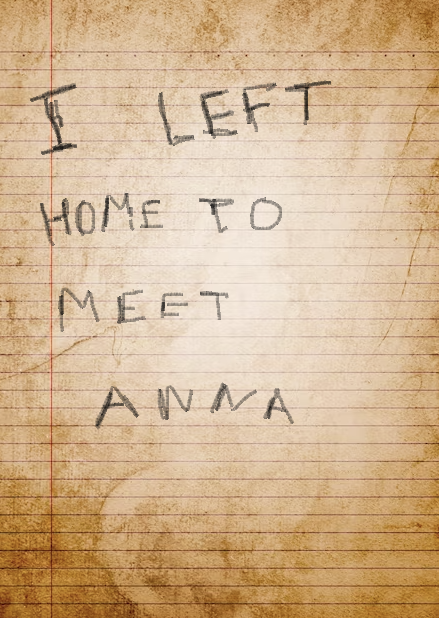 I LEFT
HOME TO
MEET
ANNA